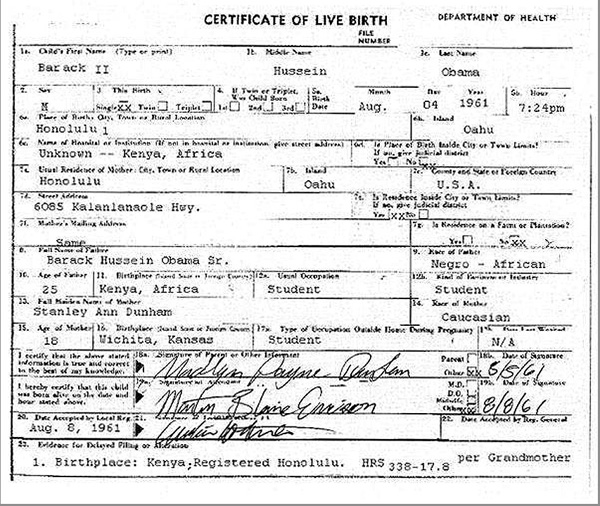 CERTIFICATE OF LIVE BIRTH
DEPARTMENT OF HEALTH
FILE
NUMBER
1a. Child's First Name (Type or print) 1b. Middle Name 1c. Last Name
Barack II Hussein Obama
2. Sex 3 This Birth 4. If Twin or Triplet, Was Child Born 5a. Birth Date Month Day Year 5b. Hour
M Single XX Twin Triplet 1st 2nd 3rd Aug. 04 1961 7:24pm
6a. Place of Birth: City, Town or Rural Location 6b. Island
Honolulu 1 Oahu
6c. Name of Hospital or Institution (If not in hospital or institution, give street address) 6d. Is Place of Birth Inside City or Town Limits? If no, give judicial district
Unknown -- Kenya, Africa Yes No xx
7a. Usual Residence of Mother: City, Town or Rural Location 7b. Island 7c. County and State or Foreign Country
Honolulu Oahu U.S.A.
7d. Street Address 7e. Is Residence Inside City or Town Limits? If no, give judicial district
6085 Kalanianaole Hwy. Yes xx No
7f. Mother's Mailing Address 7g. Is Residence on a Farm or Plantation?
Same Yes No xx
8. Full Name of Father 9. Race of Father
Barack Hussein Obama Sr. Negro - African
10. Age of Father 11. Birthplace (Island, State or Foreign Country) 12a. Usual Occupation 12b. Kind of Business or Industry
25 Kenya, Africa Student Student
13. Full Maiden Name of Mother 14. Race of Mother
Stanley Ann Dunham Caucasian
15. Age of Mother 16. Birthplace (Island, State or Foreign Country) 17a. Type of Occupation Outside Home During Pregnancy 17b. Date Last Worked
18 Wichita, Kansas Student N/A
I certify that the above stated information is true and correct to the best of my knowledge. 18a. Signature of Parent or Other Informant Parent Other xx 18b. Date of Signature
Madlyn Payne Dunham 8/5/61
I hereby certify that this child was born alive on the date and hour stated above. 19a. Signature of Attendant M.D. D.O. Midwife Other xx 19b. Date of Signature
8/8/61
20. Date Accepted by Local Reg. 21. 22. Date Accepted by Reg. General
Aug. 8, 1961
23. Evidence for Delayed Filing or Alteration
1. Birthplace: Kenya;Registered Honolulu. HRS 338-17.8 per Grandmother